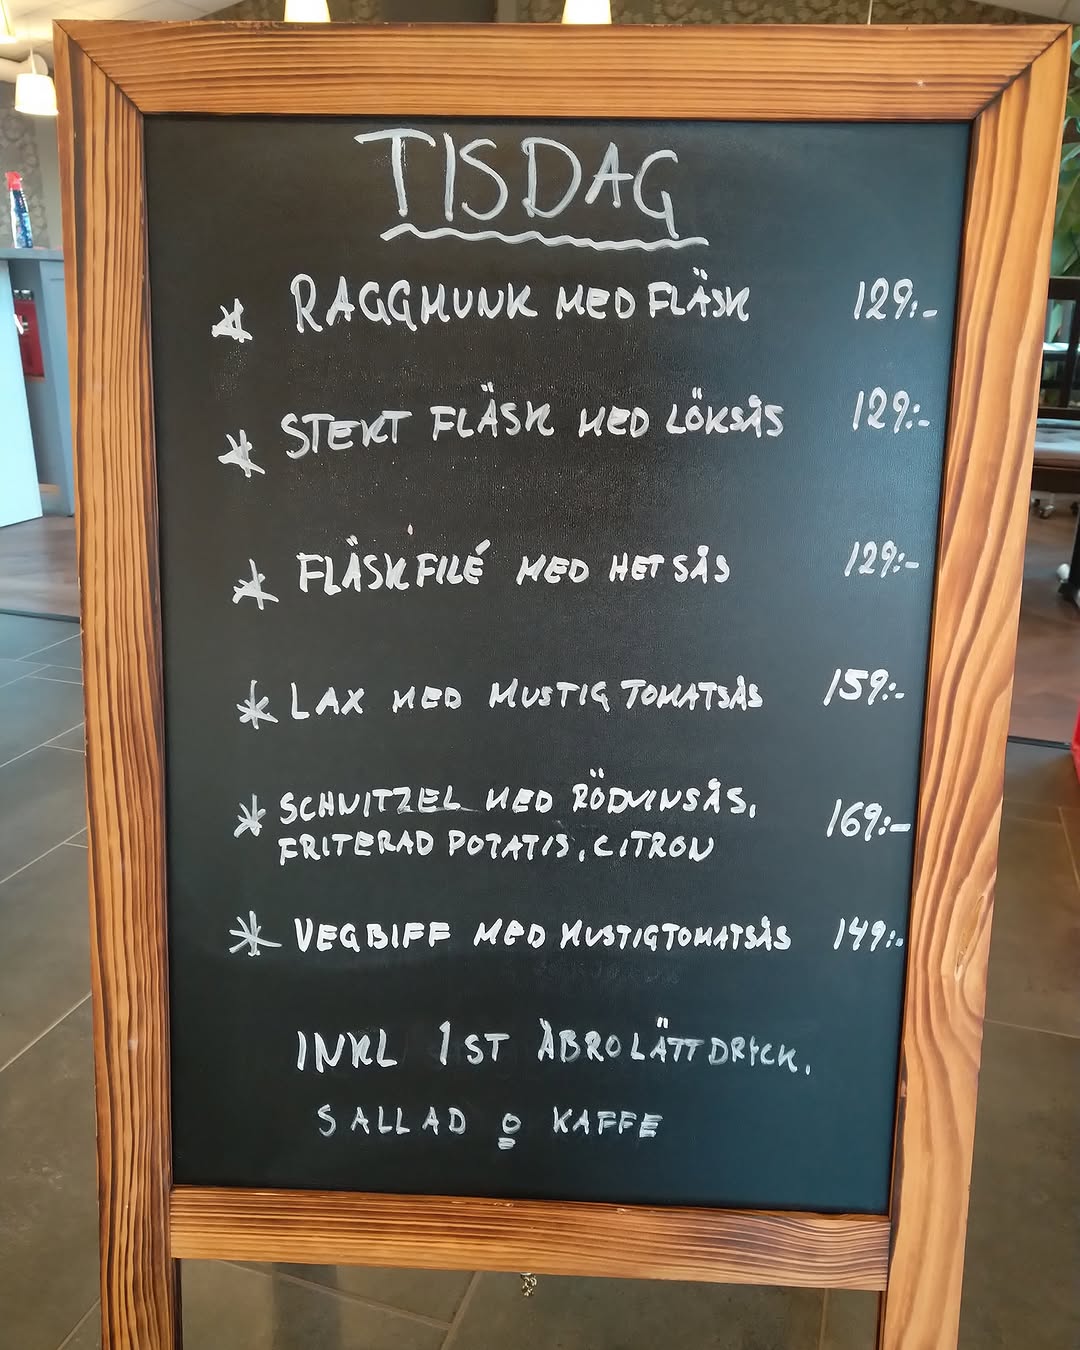 TISDAG
* RAGGMUNK MED FLÄSK 129:-
* STEKT FLÄSK MED LÖKSÅS 129:-
* FLÄSKFILÉ MED HET SÅS 129:-
* LAX MED MUSTIG TOMATSÅS 159:-
* SCHNITZEL MED RÖDVINSÅS, 169:-
FRITERAD POTATIS, CITRON
* VEGBIFF MED MUSTIG TOMATSÅS 149:-
INKL 1 ST ÅBRO LÄTTDRYCK,
SALLAD O KAFFE